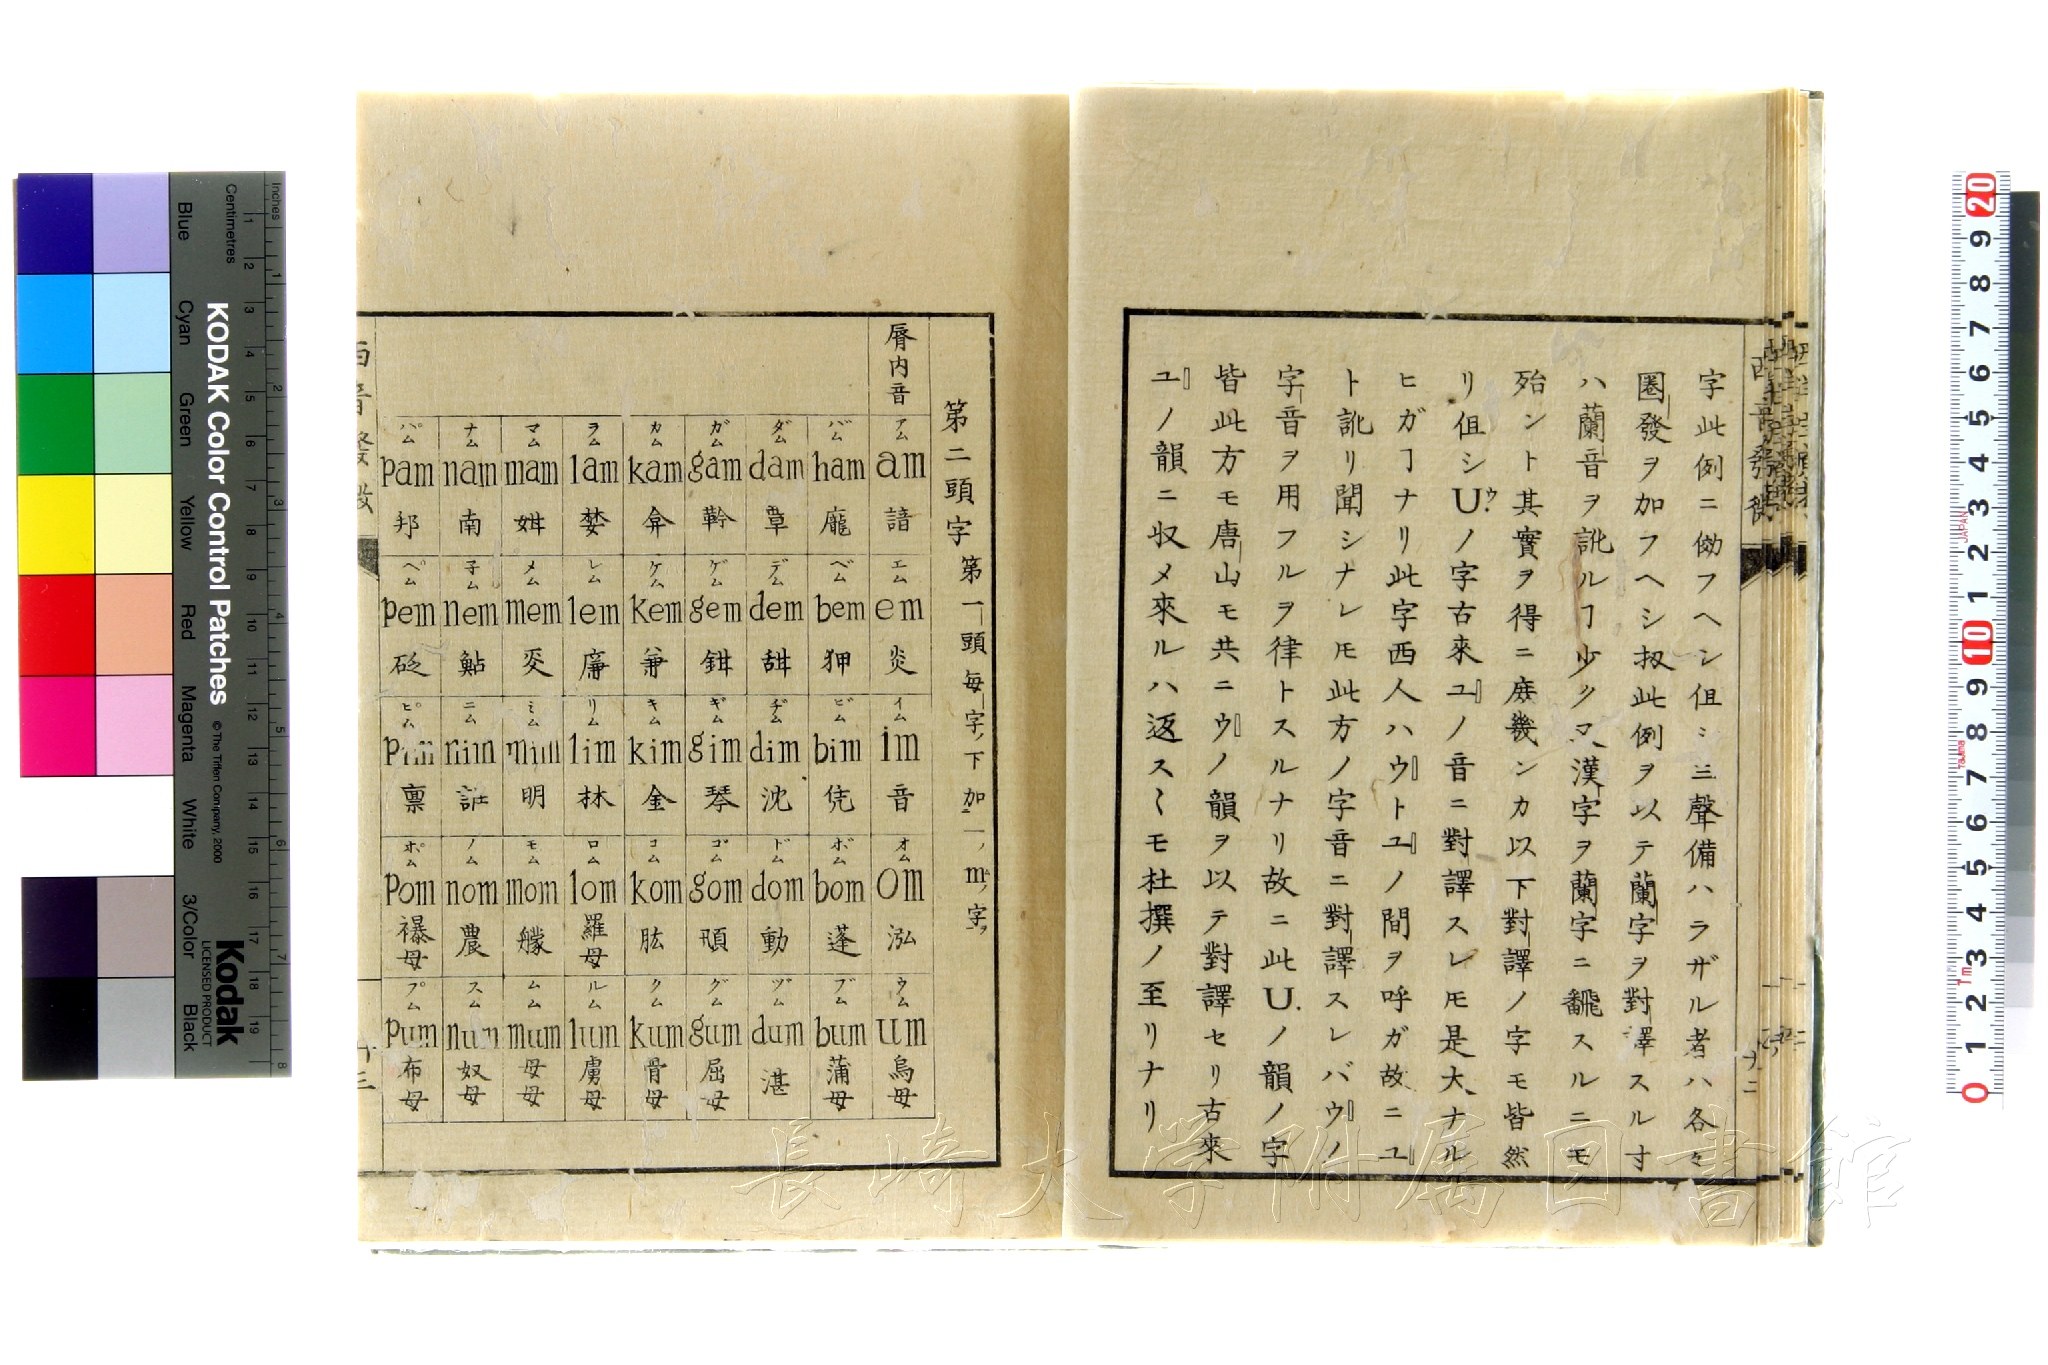 字此例ニ倣フヘシ但シ三聲備ハラザル者ハ各々
圏發ヲ加フヘシ扨此例ヲ以テ蘭字ヲ對譯スル寸
ハ蘭音ヲ訛ルヿ少ク又漢字ヲ蘭字ニ飜スルニモ
殆ント其實ヲ得ニ庶幾ンカ以下對譯ノ字モ皆然
リ但シUノ字古來ユノ音ニ對譯スレ𪜈是大ナル
ヒガヿナリ此字西人ハウトユノ間ヲ呼ガ故ニユ
ト訛リ聞シナレ𪜈此方ノ字音ニ對譯スレバウノ
字音ヲ用フルヲ律トスルナリ故ニ此U.ノ韻ノ字
皆此方モ唐山モ共ニウノ韻ヲ以テ對譯セリ古來
ユノ韻ニ収メ來ルハ返スくモ杜撰ノ至リナリ
西音發微
十二
第二頭字 第一頭每字ノ下加一ノmノ字ヲ
脣内音
アム am 諳
エム em 炎
イム im 音
オム om 泓
ウム um 烏母
バム bam 龐
ベム bem 狎
ビム bim 凭
ボム bom 蓬
ブム bum 蒲母
ダム dam 覃
デム dem 甜
ヂム dim 沈
ドム dom 動
ヅム dum 湛
ガム gam
ゲム gem 鉗
ギム gim 琴
ゴム gom
グム gum 屈母
カム kam 弇
ケム kem 兼
キム kim 金
コム kom 肱
クム kum 骨母
ラム lam 婪
レム lem 廉
リム lim 林
ロム lom 羅母
ルム lum 虜母
マム mam 姏
メム mem
ミム mim 明
モム mom 艨
ムム mum 母母
ナム nam 南
子ム nem 鮎
ニム nim
ノム nom 農
スム num 奴母
パム pam 邦
ペム pem 砭
ピム pim 禀
ポム pom 襮母
プム pum 布母
西音發微
十三
長崎大学附属図書館
Inches
Centimetres
KODAK Color Control Patches
© The Tiffen Company, 2000
Blue
Cyan
Green
Yellow
Red
Magenta
White
3/Color
Black
Kodak
LICENSED PRODUCT
JAPAN